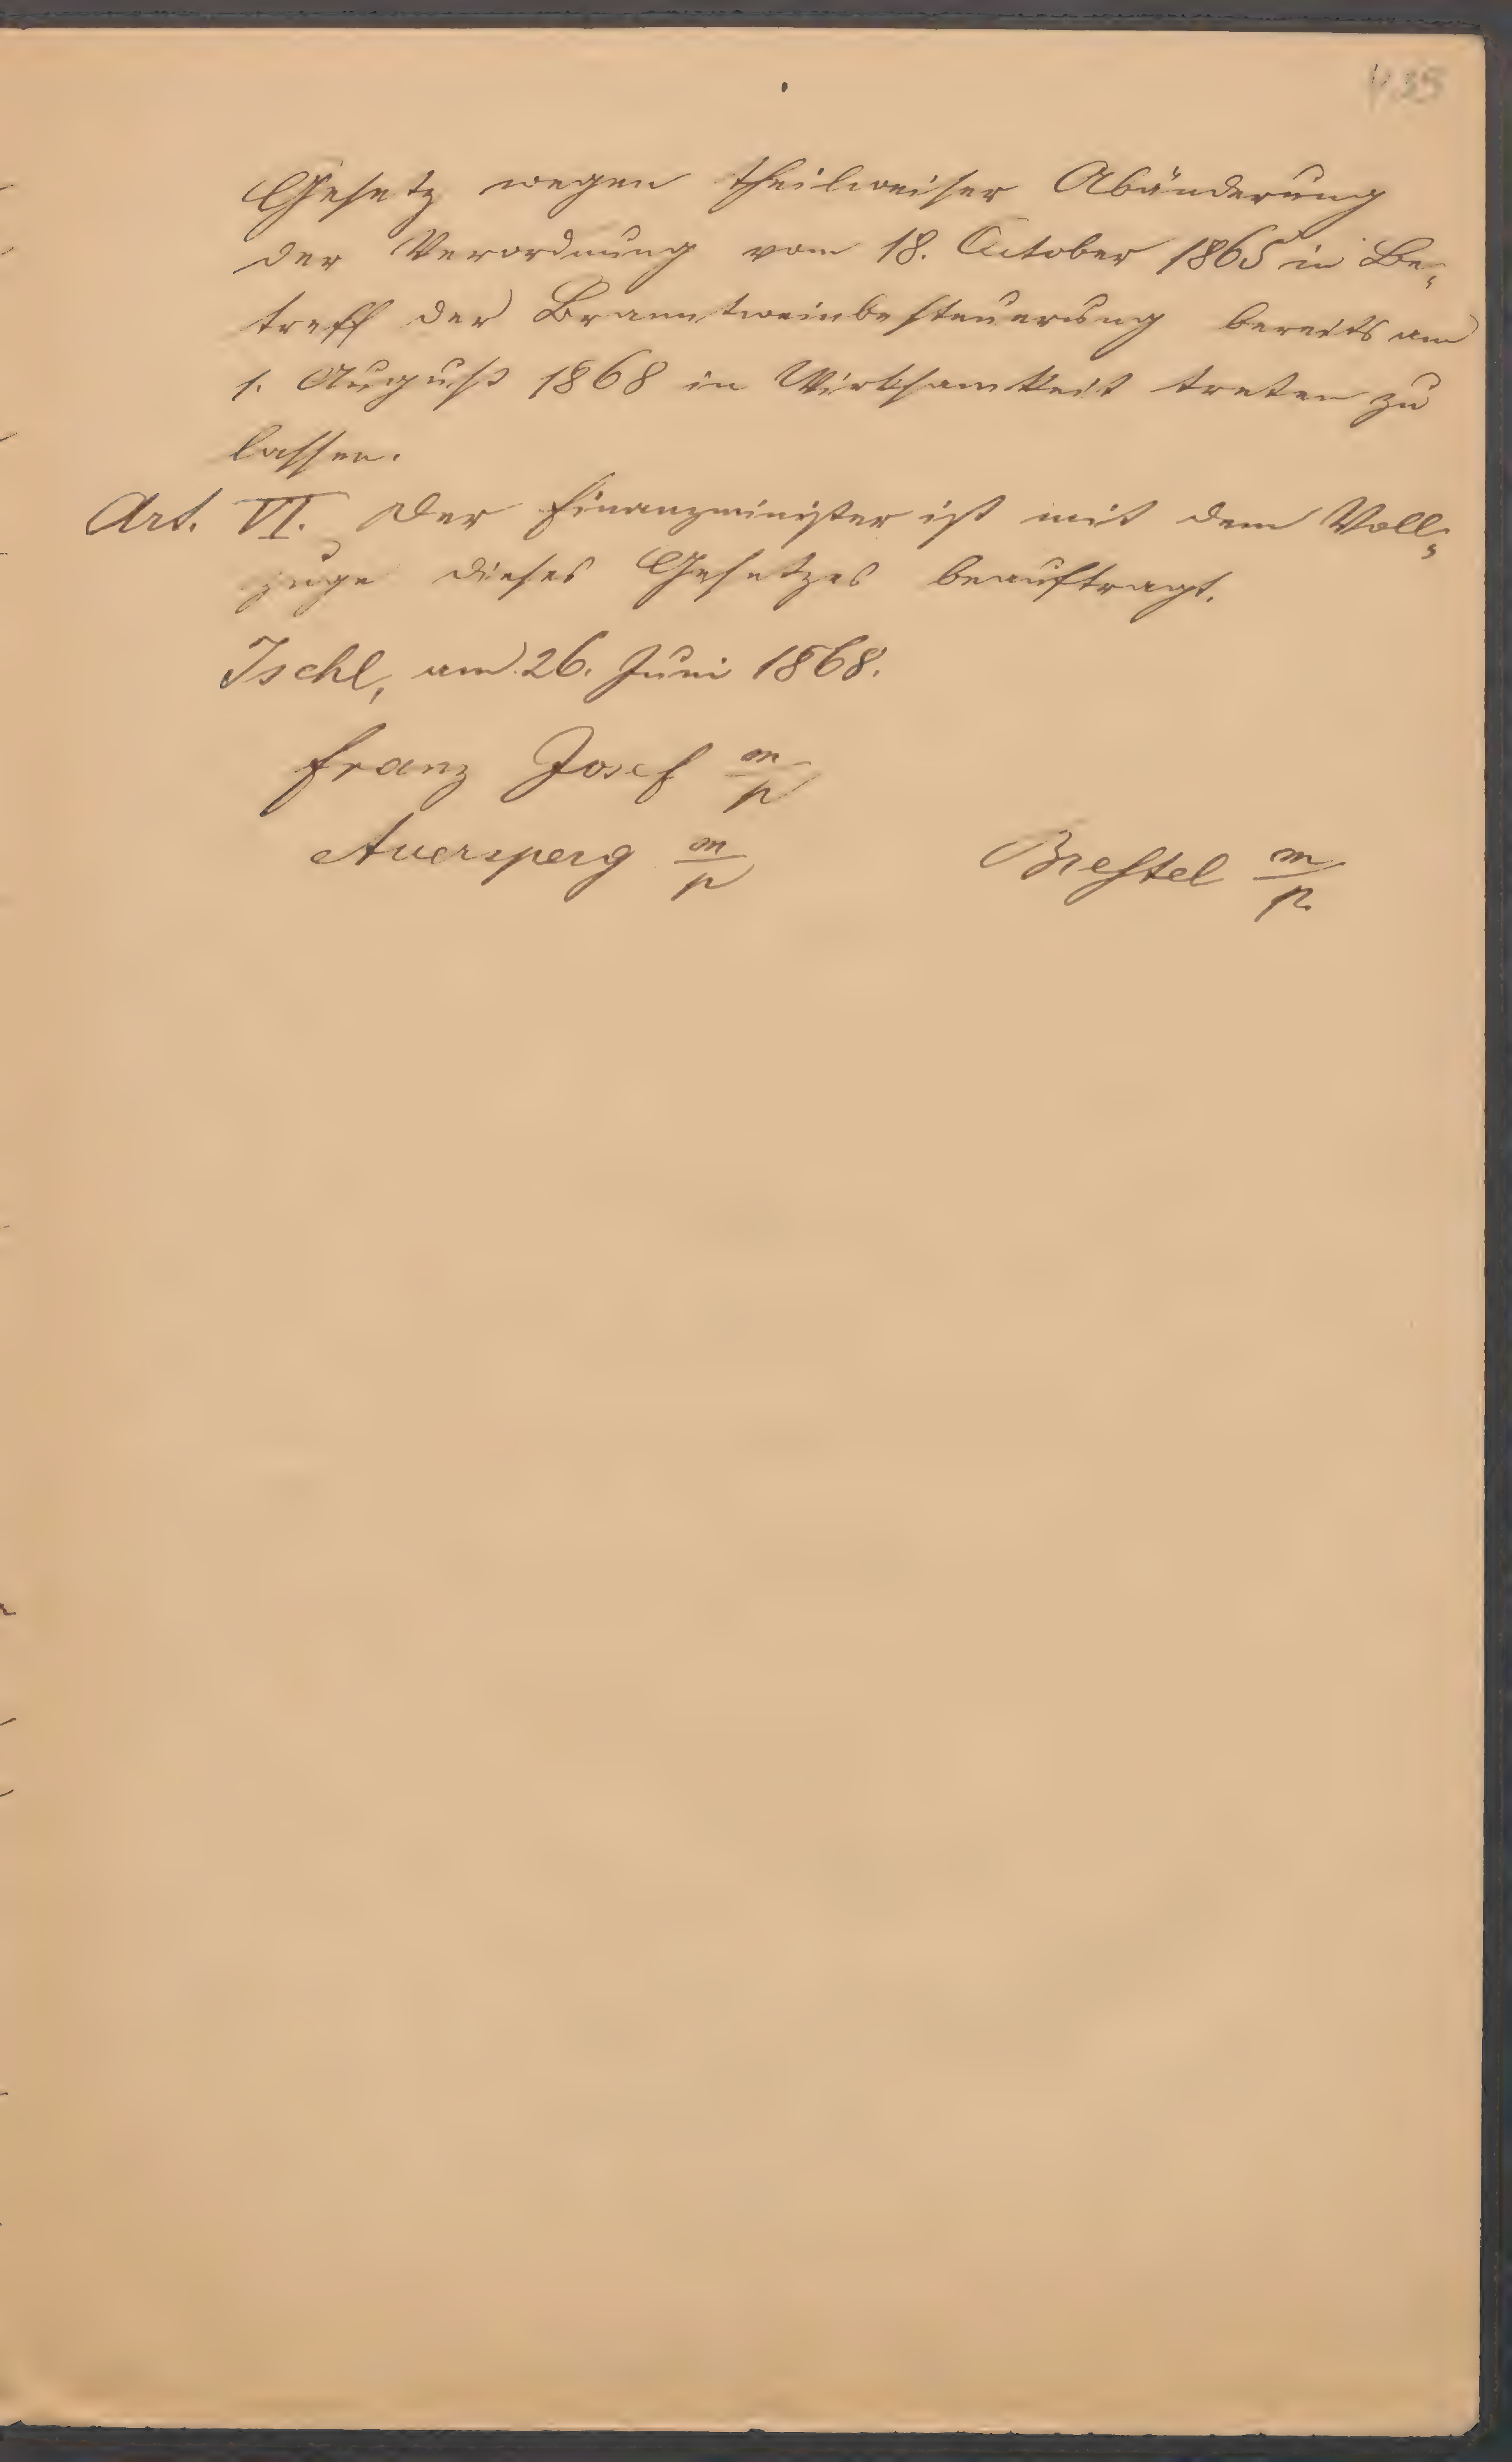 Gesetz wegen theilweiser Abänderung
der Verordnung vom 18. October 1865 in Be-
treff der Branntweinbesteuerung bereits am
1. August 1868 in Wirksamkeit treten zu
lassen.
Art. VI. Der Finanzminister ist mit dem Voll-
zuge dieses Gesetzes beauftragt.
Ischl, am 26. Juni 1868.
Franz Josef m/p
Auersperg m/p Brestel m/p.